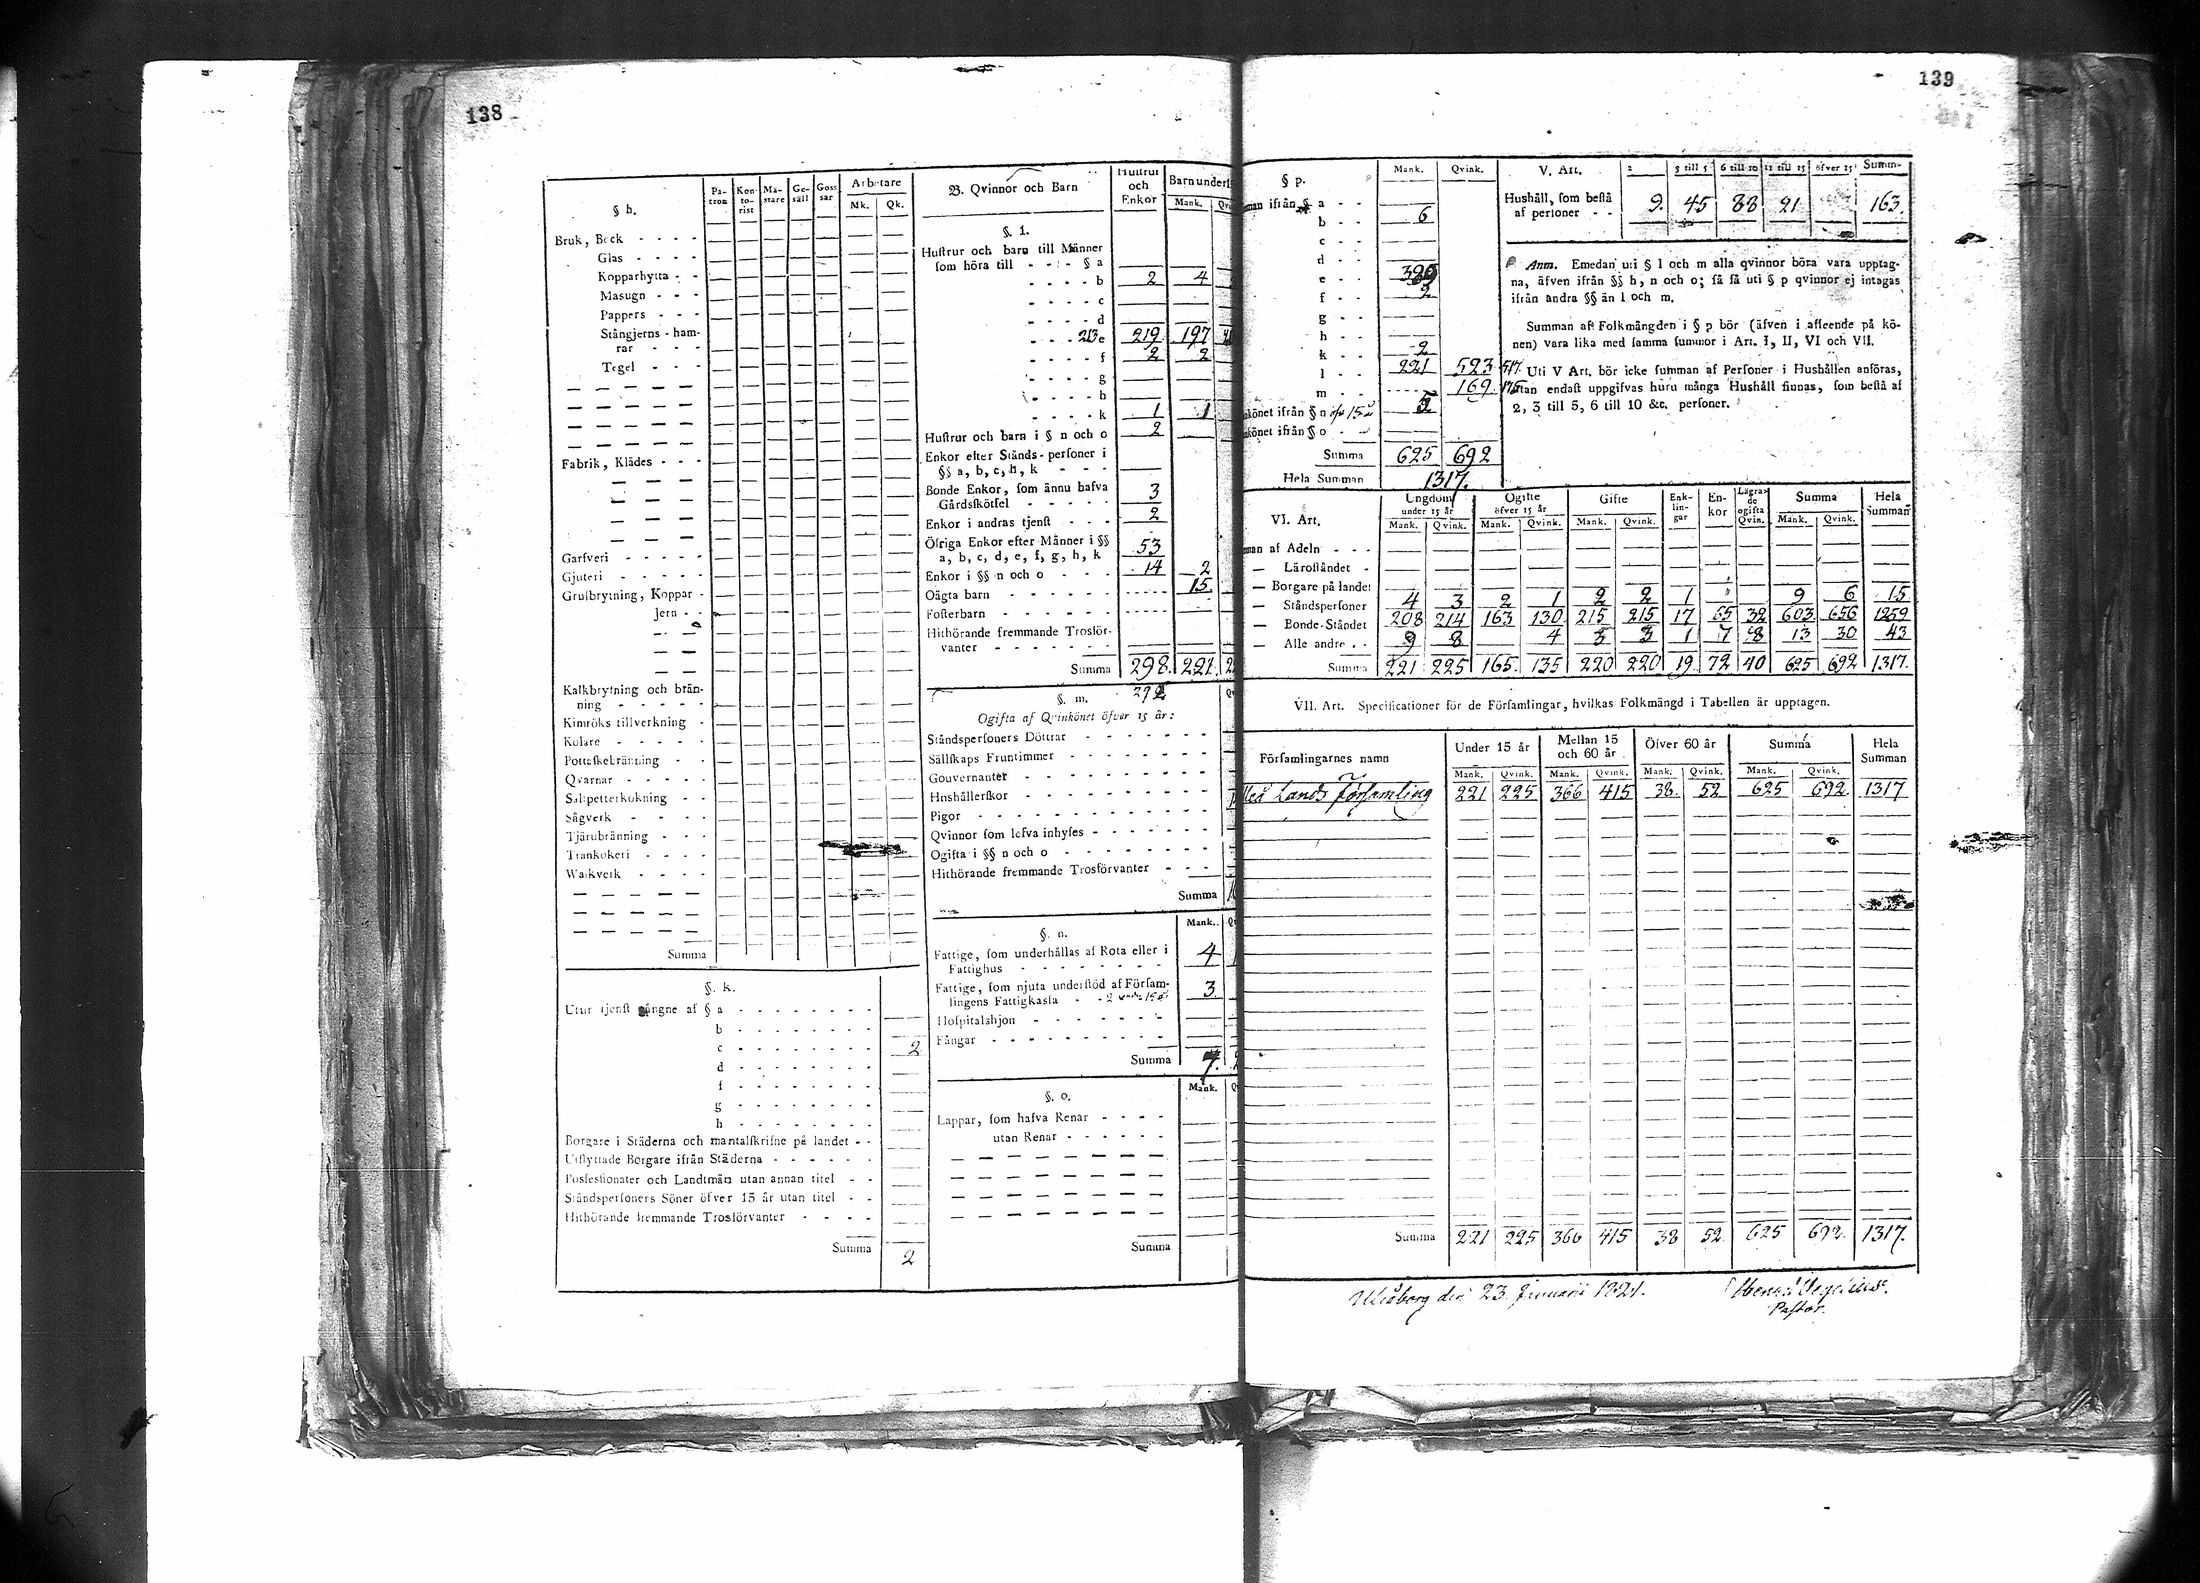 138
§ h.
Pa-tron Kon-to-rist Mä-stare Ge-säll Gos-sar Arbetare
Mk. Qk.
Bruk, Beck - - - -
Glas - - - -
Kopparhytta - -
Masugn - - -
Pappers - - -
Stångjerns-ham-
rar - - -
Tegel - - -
Fabrik, Klädes - - -
Garfveri - - - - -
Gjuteri - - - - -
Grufbrytning, Koppar -
Jern - -
Kalkbrytning och brän-
ning - - - - -
Kimröks tillverkning -
Kolare - - - - -
Pottaskebränning - -
Qvarnar - - - -
Saltpetterkokning - -
Sågverk - - - -
Tjärubränning - - -
Trankokeri - - - -
Walkverk - - - -
Summa
§. k.
Utur tjenst gångne af § a - - - - - - - -
b - - - - - - - -
c - - - - - - - - 2
d - - - - - - - -
f - - - - - - - -
g - - - - - - - -
h - - - - - - - -
Borgare i Städerna och mantalskrifne på landet - -
Utflyttade Borgare ifrån Städerna - - - - - -
Possessionater och Landtmän utan annan titel - -
Ståndspersoners Söner öfver 15 år utan titel - -
Hithörande fremmande Trosförvanter - - - -
Summa 2
B. Qvinnor och Barn
Hustrur
och
Enkor
Barn under
Mank.
§. l.
Hustrur och barn till Männer
som höra till - - - § a
- - - - b 2 4
- - - - c
- - - - d
- - - 213 e 219 197
- - - - f 2 2
- - - - g
- - - - h
- - - - k 1 1
Hustrur och barn i § n och o 2
Enkor efter Stånds-personer i
§§ a, b, c, h, k - - -
Bonde Enkor, som ännu hafva
Gårdsskötsel - - - - - 3
Enkor i andras tjenst - - - 2
Öfriga Enkor efter Männer i §§
a, b, c, d, e, f, g, h, k 53
Enkor i §§ n och o - - - 14 2
Oägta barn - - - - - - 15
Fosterbarn - - - - - - -
Hithörande fremmande Trosför-
vanter - - - - - - -
Summa 298. 221.
§. m.
Ogifta af Qvinkönet öfver 15 år:
Ståndspersoners Döttrar - - - - - - -
Sällskaps Fruntimmer - - - - - - -
Gouvernanter - - - - - - - - -
Hushållerskor - - - - - - - - -
Pigor - - - - - - - - - - -
Qvinnor som lefva inhyses - - - - - - -
Ogifta i §§ n och o - - - - - - - -
Hithörande fremmande Trosförvanter - -
Summa
§. n.
Mank.
Fattige, som underhållas af Rota eller i
Fattighus - - - - - - - 4
Fattige, som njuta understöd af Försam-
lingens Fattigkassa - - 2 under 15 år 3
Hospitalshjon - - - - - - -
Fångar - - - - - - - - - -
Summa 7.
§. o.
Mank.
Lappar, som hafva Renar - - - -
utan Renar - - - - - -
Summa
139
§ p.
Mank. Qvink.
ifrån § a - -
b - - 6
c - -
d - -
e - -
f - - 2
g - -
h - -
k - - 2
l - - 221 523 517
m - - 169. 175
könet ifrån § n öfv 15 år
könet ifrån § o - -
Summa 625 692
Hela Summan 1317.
V. Art.
2 3 till 5 6 till 10 11 till 15 öfver 15 Summa
Hushåll, som bestå
af personer - - 9. 45 88 21 163.
Anm. Emedan uti § l och m alla qvinnor böra vara upptag-
na, äfven ifrån §§ h, n och o; så få uti § p qvinnor ej intagas
ifrån andra §§ än l och m.
Summan af Folkmängden i § p bör (äfven i afseende på kö-
nen) vara lika med samma summor i Art. I, II, VI och VII.
Uti V Art. bör icke summan af Personer i Hushållen anföras,
utan endast uppgifvas huru många Hushåll finnas, som bestå af
2, 3 till 5, 6 till 10 &c. personer.
VI. Art.
Ungdom under 15 år Ogifte öfver 15 år Gifte Enk-lin-gar En-kor Lägra-de ogifta Qvin. Summa Hela Summan
Mank. Qvink. Mank. Qvink. Mank. Qvink. Mank. Qvink.
af Adeln - - -
— Läroståndet -
— Borgare på landet
— Ståndspersoner 4 3 2 1 2 2 1 9 6 15
— Bonde-Ståndet 208 214 163 130 215 215 17 65 32 603 656 1259
— Alle andre - - 9 8 4 3 3 1 7 8 13 30 43
Summa 221 225 165. 135 220 220 19. 72 40 625 692 1317.
VII. Art. Specificationer för de Församlingar, hvilkas Folkmängd i Tabellen är upptagen.
Församlingarnes namn Under 15 år Mellan 15 och 60 år Öfver 60 år Summa Hela Summan
Mank. Qvink. Mank. Qvink. Mank. Qvink. Mank. Qvink.
Lands Församling 221 225 366 415 38. 52 625 692. 1317
Summa 221 225 366 415 38 52 625 692. 1317.
Uleåborg den 23 Januarii 1821.
Pastor.